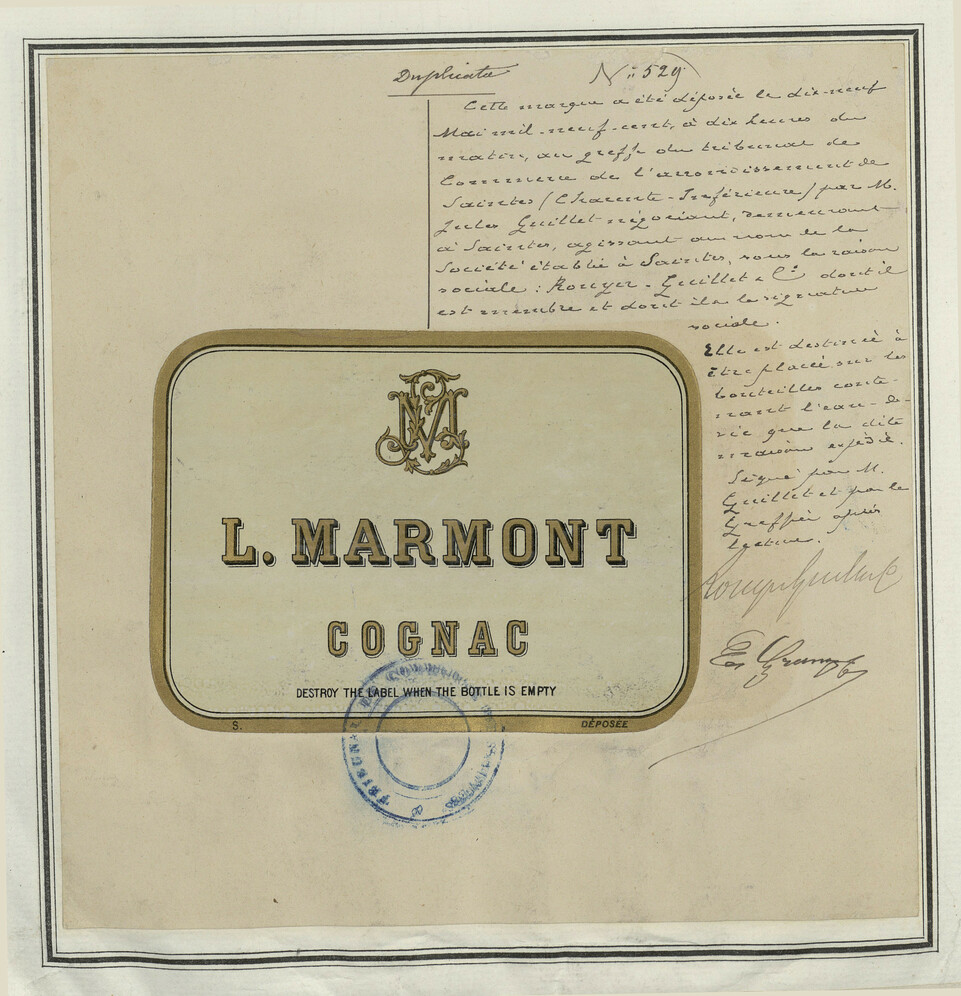 Duplicata
N° 529
Cette marque a été déposée le dix-neuf
Mai mil-neuf-cent, à dix heures du
matin, au greffe du tribunal de
Commerce de l'arrondissement de
Saintes (Charente-Inférieure) par M.
Jules Guillet négociant, demeurant
à Saintes, agissant au nom de la
Société établie à Saintes, sous la raison
sociale : Rouyer-Guillet & Cie dont il
est membre et dont il a la signature
sociale.
Elle est destinée à
être placée sur les
bouteilles conte-
nant l'eau-de-
vie que la dite
maison expédie.
Signé par M.
Guillet et par le
Greffier après
lecture.
Rouyer Guillet & C
JM
L. MARMONT
COGNAC
DESTROY THE LABEL WHEN THE BOTTLE IS EMPTY
S. DÉPOSÉE
TRIBUNAL DE COMMERCE